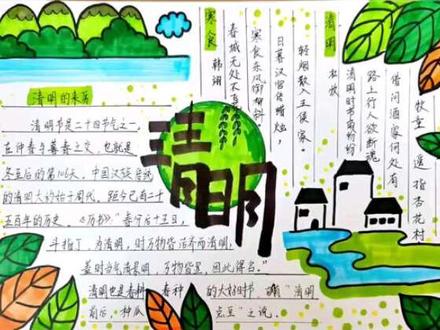 清明
寒食
韩翃
春城无处不
寒食东风御柳
日暮汉宫传蜡烛，
轻烟散入五侯家。
清明
杜牧
清明时节雨纷纷
路上行人欲断魂
借问酒家何处有
牧童遥指杏花村
清明的来历
清明节是二十四节气之一，
在仲春与暮春之交，也就是
冬至后的第106天，中国汉族传统
的清明大约始于周代，距今已有二千
五百年的历史，《历书》"春分后十五日，
斗指丁，为清明，时万物皆洁齐而清明，
盖时当气清景明，万物皆显，因此得名。"
清明也是春耕 春种 的大好时节，"清明
前后，种瓜 点豆"之说。